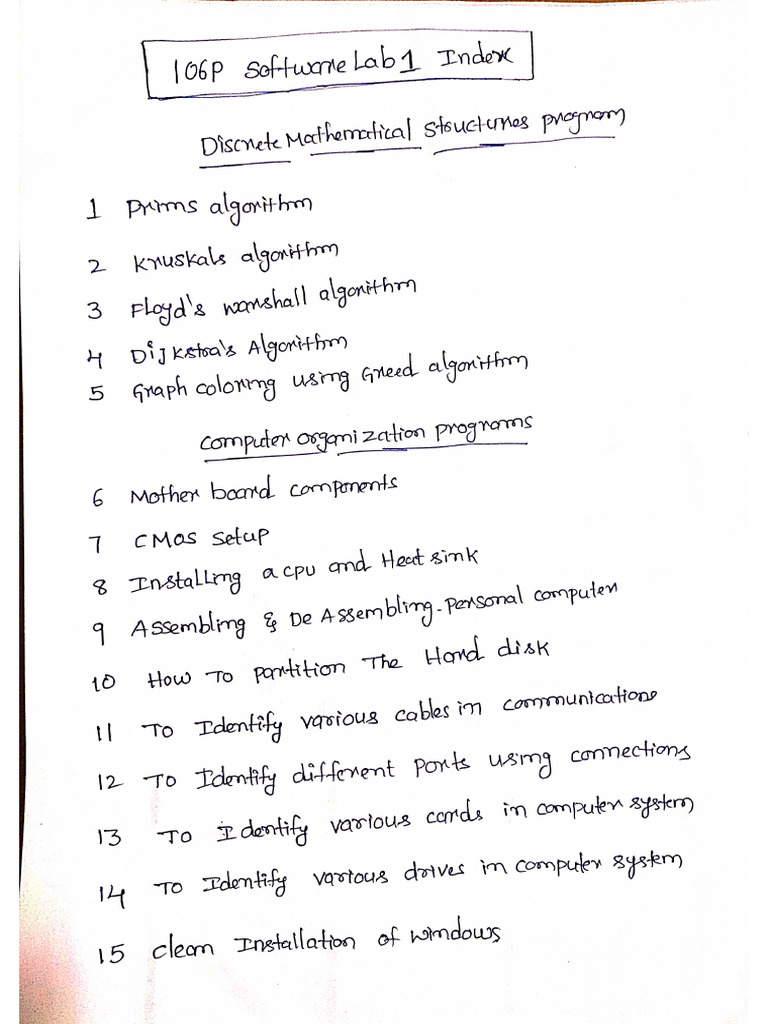 106P Software Lab 1 Index
Discrete Mathematical Structures program
1 Prims algorithm
2 Kruskals algorithm
3 Floyd's warshall algorithm
4 Dijkstra's Algorithm
5 Graph coloring using Greed algorithm
Computer organization programs
6 Mother board components
7 CMOS setup
8 Installing a cpu and Heat sink
9 Assembling & De Assembling-personal computer
10 How To partition The Hard disk
11 To Identify various cables in communications
12 To Identify different ports using connections
13 To Identify various cards in computer system
14 To Identify various drives in computer system
15 clean Installation of windows